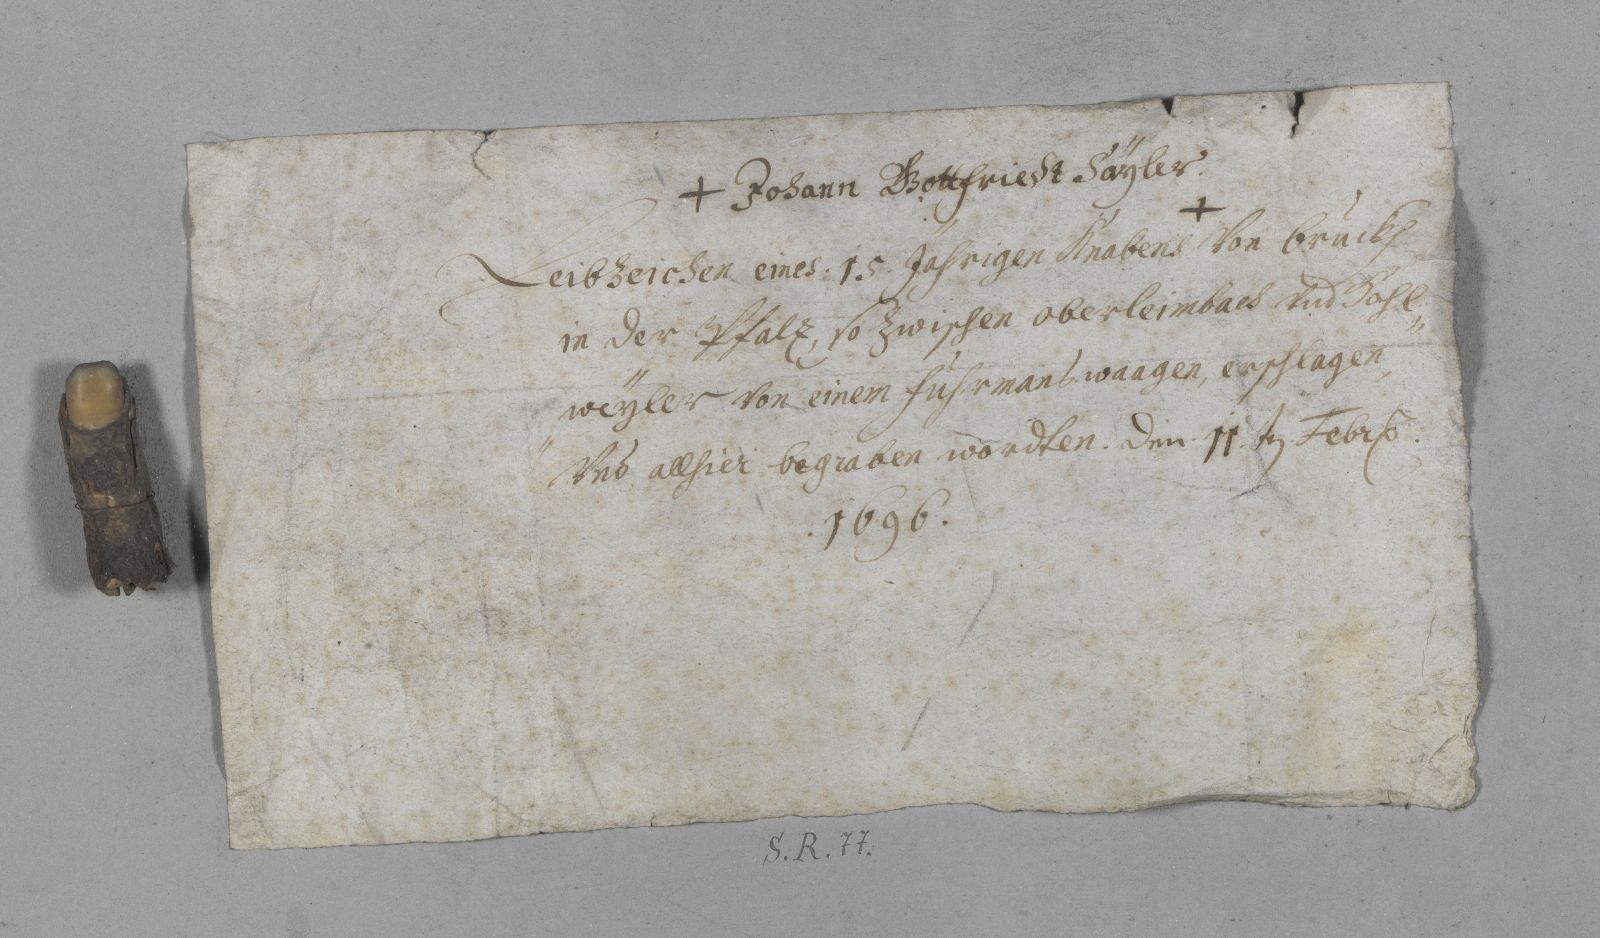 + Johann Gottfriedt Säÿler.
+
Leibzeichen eines. 15. Jährigen Knabens Von brückh
in der Pfalz, so Zwischen oberleimbach Vnd Zohl„
weÿler Von einem fuhrmans waagen, erschlagen,
Vnd allhier begraben wordten. den. 11. Febr.
. 1696.
S. R. 77.